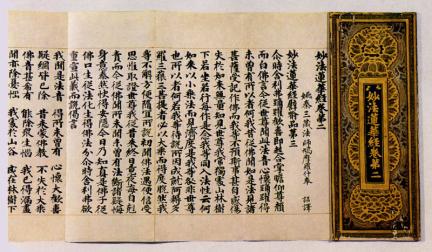 妙法蓮華經卷第二
妙法蓮華經卷第二
姚秦三藏法師鳩摩羅什奉 詔譯
妙法蓮華經譬喻品第三
尒時舍利弗踊躍歡喜即起合掌瞻仰尊顏
而白佛言今從世尊聞此法音心懷踊躍得
未曾有所以者何我昔從佛聞如是法見諸
菩薩受記作佛而我等不豫斯事甚自感傷
失於如來無量知見世尊我常獨處山林樹
下若坐若行每作是念我等同入法性云何
如來以小乘法而見濟度是我等咎非世尊
也所以者何若我等待說所因成就阿耨多
羅三藐三菩提者必以大乘而得度脫然我
等不解方便隨宜所說初聞佛法遇便信受
思惟取證世尊我從昔來終日竟夜每自剋
責而今從佛聞所未聞未曾有法斷諸疑悔
身意泰然快得安隱今日乃知真是佛子從
佛口生從法化生得佛法分尒時舍利弗欲
重宣此義而說偈言
我聞是法音 得所未曾有 心懷大歡喜
疑網皆已除 昔來蒙佛教 不失於大乘
佛音甚希有 能除眾生惱 我已得漏盡
聞亦除憂惱 我處於山谷 或在林樹下